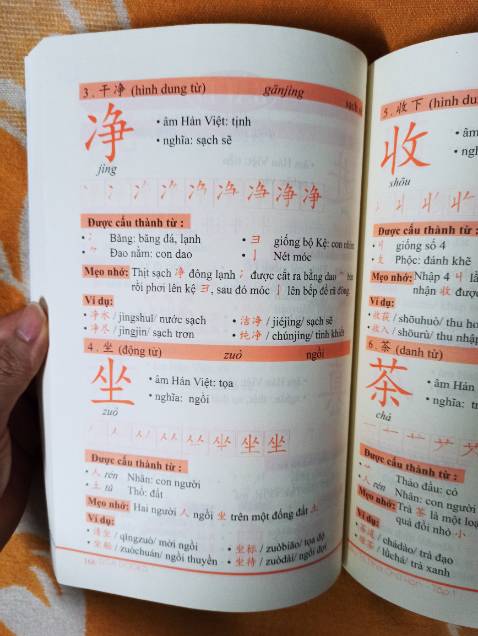 3 . 干净 (hình dung từ) gānjìng sạch
净
• âm Hán Việt: tịnh
• nghĩa: sạch sẽ
jìng
Được cấu thành từ :
• 冫 Băng: băng đá, lạnh • ⺕ giống bộ Kệ: con nhím
• Đao nằm: con dao • 亅 Nét móc
Mẹo nhớ: Thịt sạch 净 đông lạnh 冫 được cắt ra bằng dao
rồi phơi lên kệ ⺕, sau đó móc 亅 lên bếp để rã đông.
Ví dụ:
• 净水 / jìngshuǐ/ nước sạch • 洁净 / jiéjìng/ sạch sẽ
• 净尽 / jìngjìn/ sạch trơn • 纯净 / chúnjìng/ tinh khiết
4 . 坐 (động từ) zuò ngồi
坐
• âm Hán Việt: tọa
• nghĩa: ngồi
zuò
Được cấu thành từ :
• 人 rén Nhân: con người
• 土 tǔ Thổ: đất
Mẹo nhớ: Hai người 人 ngồi 坐 trên một đống đất 土
Ví dụ:
• 请坐 / qǐngzuò/ mời ngồi • 坐标 / zuòbiāo/ tọa độ
• 坐船 / zuòchuán/ ngồi thuyền • 坐待 / zuòdài/ ngồi đợi
5 . 收下 (hình du
收
• âm
• ngh
shōu
Được cấu thành từ :
• 丩 giống số 4
• 攵 Phộc: đánh khẽ
Mẹo nhớ: Nhập 4 丩
nhận 收 đượ
Ví dụ:
• 收获 / shōuhuò/ thu ho
• 收入 / shōurù/ thu nhập
6 . 茶 (danh từ)
茶
• âm Hán
• nghĩa:
chá
Được cấu thành từ :
• 艹 Thảo đầu: cỏ
• 人 rén Nhân: con người
Mẹo nhớ: Trà 茶 là một loạ
quả đồi nhỏ 小
Ví dụ:
• 茶道 / chádào/ trà đạo
• 绿茶 / lǜchá/ trà xanh